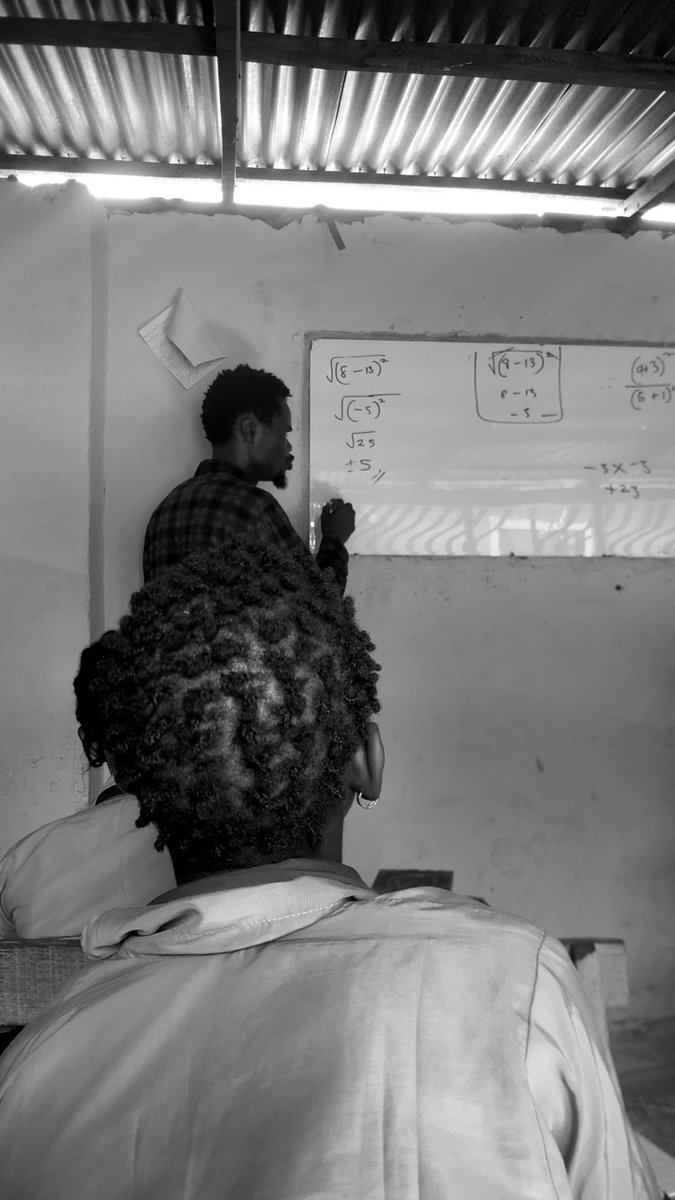 √(8 - 13)²
√(-5)²
√25
±5
√(8 - 13)²
8 - 13
- 5
(4+3)²
(5 + 1)²
- 5 x - 5
+25